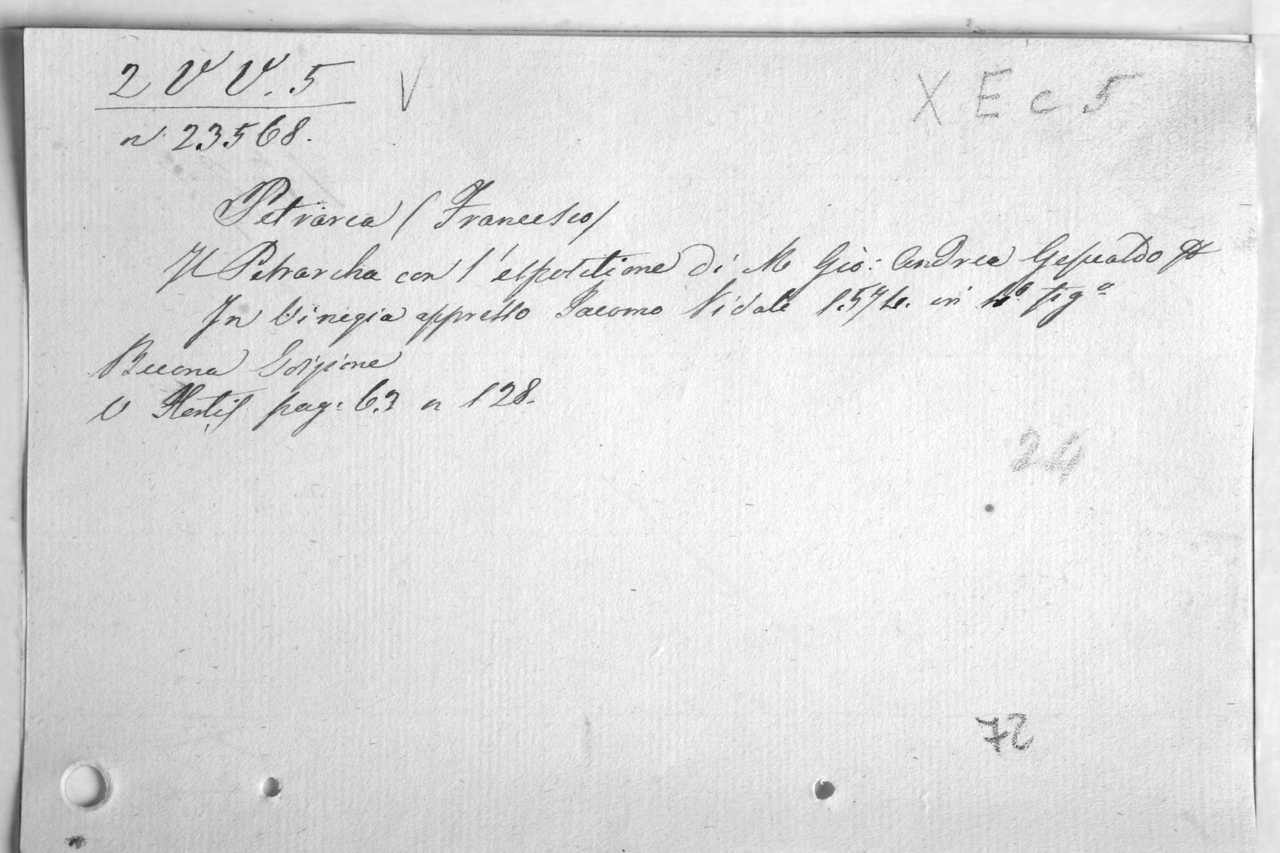 2 V V. 5 V X E c 5
n 23568.
Petrarca (Francesco)
Il Petrarcha con l'espositione di M Gio: Andrea Gesualdo
In Vinegia appresso Iacomo Vidale 1574. in 4° fig°
Buona Edizione
V pag: 63 n 128.
24
72